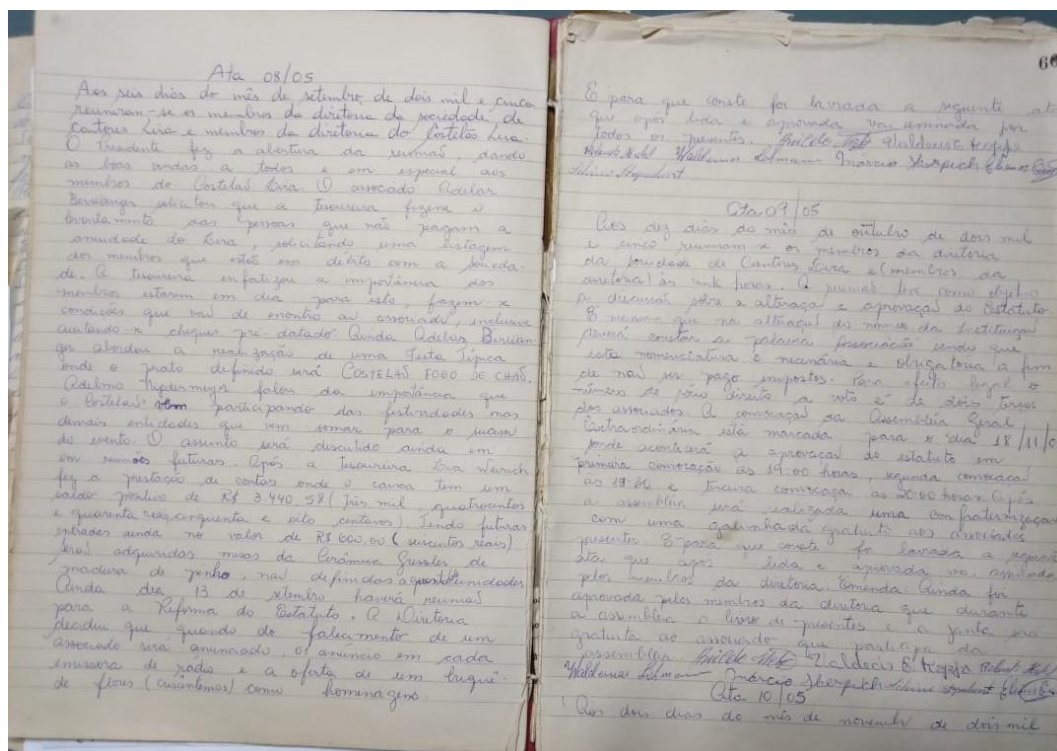 Ata 08/05
Aos seis dias do mês de setembro de dois mil e cinco
reuniram-se os membros da diretoria da sociedade de
Cantores Lira e membros da diretoria do Costelão Lira.
O Presidente fez a abertura da reunião, dando
as boas vindas a todos e em especial aos
membros do Costelão Lira. O associado Adelar
solicitou que a tesoureira fizesse o
levantamento das pessoas que não pagam a
anuidade do Lira, solicitando uma listagem
dos membros que estão em débito com a socieda-
de. A tesoureira enfatizou a importância dos
membros estarem em dia para isto, fazem-se
condições que vai de encontro ao associado, inclusive
aceitando-se cheques pré-datado. Ainda Adelar
abordou a realização de uma Festa Típica
onde o prato definido será COSTELÃO FOGO DE CHÃO.
Adelmo falou da importância que
o Costelão vem participando das festividades nas
demais entidades que vem somar para o sucesso
do evento. O assunto será discutido ainda em
em reuniões futuras. Após a tesoureira
fez a prestação de contas onde o caixa tem um
saldo positivo de R$ 3.440,58 (Três mil, quatrocentos
e quarenta reais, cinquenta e oito centavos). Tendo futuras
entradas ainda no valor de R$ 600,00 (seiscentos reais)
Será adquiridas mesas da Cerâmica de
madeira de pinho, não definidas a unidades
Ainda dia 13 de setembro haverá reunião
para a Reforma do Estatuto. A Diretoria
decidiu que quando do falecimento de um
associado será anunciado, o anúncio em cada
emissora de rádio e a oferta de um buquê
de flores (crisântemos) como homenagem.
60
E para que conste foi lavrada a seguinte ata
que após lida e aprovada vai assinada por
todos os presentes.
Waldemar Márcio
Ata 09/05
Aos dez dias do mês de outubro de dois mil
e cinco reuniram-se os membros da diretoria
da Sociedade de Cantores Lira e (membros da
diretoria) às vinte horas. A reunião teve como objetivo
a discussão sobre a alteração e aprovação do Estatuto.
E mesmo que na alteração do nome da Instituição
deverá constar a palavra Associação sendo que
esta nomenclatura é necessária e obrigatória a fim
de não ser pago impostos. Para efeito legal o
número de sócio direito a voto é de dois terços
dos associados. A convocação da Assembléia Geral
Extraordinária está marcada para o dia 18/11/0
onde acontecerá a aprovação do estatuto em
primeira convocação às 19:00 horas, segunda convocação
às 19:30 e terceira convocação às 20:00 horas. Após
a assembléia será realizada uma confraternização
com uma galinhada gratuita aos associados
presentes. E para que conste foi lavrada a seguinte
ata que após lida e aprovada vai assinada
pelos membros da diretoria. Emenda. Ainda foi
aprovada pelos membros da diretoria que durante
a assembléia o livro de presentes e a janta será
gratuita ao associado que participa da
assembléia.
Waldemar Márcio
Ata 10/05
Aos dois dias do mês de novembro de dois mil